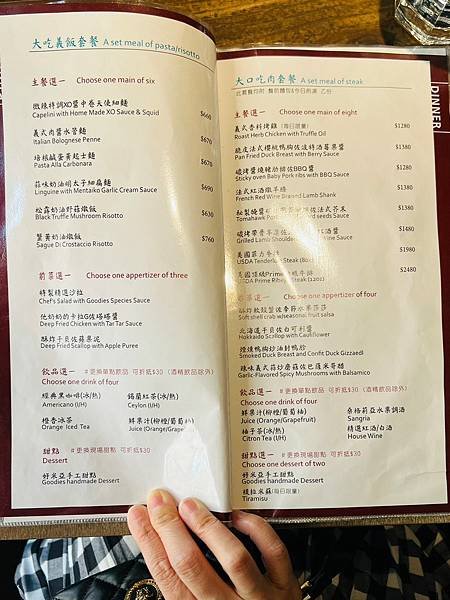 大吃義飯套餐 A set meal of pasta/risotto
主餐選一 Choose one main of six
微辣特調XO醬中卷天使細麵 $660
Capelini with Home Made XO Sauce & Squid
義式肉醬水管麵
Italian Bolognese Penne $670
培根鹹蛋黃起士麵
Pasta Alla Carbonara
蒜味奶油明太子細扁麵 $690
Linguine with Mentaiko Garlic Cream Sauce
松露奶油野菇燉飯 $630
Black Truffle Mushroom Risotto
蟹黃奶油燉飯 $760
Sague Di Crostaccio Risotto
前菜選一 Choose one appertizer of three
特製精選沙拉
Chef's Salad with Goodies Species Sauce
他奶奶的卡拉G佐塔塔醬
Deep Fried Chicken with Tar Tar Sauce
酥炸干貝佐蘋果泥
Deep Fried Scallop with Apple Puree
飲品選一 #更換單點飲品 可折抵$30 (酒精飲品除外)
Choose one drink of four
經典黑咖啡(冰/熱) 錫蘭紅茶(冰/熱)
Americano (I/H) Ceylon (I/H)
橙香冰茶 鮮果汁(柳橙/葡萄柚)
Orange Iced Tea Juice (Orange/Grape
甜點 #更換現場甜點 可折抵$30
Dessert
好米亞手工甜點
Goodies handmade Dessert
DINNER
大口吃肉套餐 A set meal of steak
主餐選一 Choose one main of eight
義式香料烤雞 (每日限量) $1280
Roast Herb Chicken with Truffle Oil
脆皮法式櫻桃鴨胸佐波特酒莓果醬 $1380
Pan Fried Duck Breast with Berry Sauce
碳烤醬燒豬肋排佐BBQ醬 $1280
Sticky oven Baby Pork ribs with BBQ Sauce
法式紅酒燉羊膝 $1380
French Red Wine Braised Lamb Shank
$1380
Tomahawk Pork seeds Sauce
$1480
Grilled Lamb Shoulder Wine Sauce
美國菲力牛排 $1980
USDA Tenderloin Steak (8oz)
美國頂級Prime肋眼牛排 $2480
USDA Prime Ribeye Steak (12oz)
前菜選一 Choose one appertizer of four
酥炸軟殼蟹佐季節水果莎莎
Soft shell crab w/seasonal fruit salsa
北海道干貝佐白可利醬
Hokkaido Scallop with Cauliflower
煙燻鴨胸炒油封鴨胗
Smoked Duck Breast and Confit Duck Gizzaedl
辣味義式蒜炒蘑菇佐巴薩米可醋
Garlic-Flavored Spicy Mushrooms with Balsamico
飲品選一 #更換單點飲品 可折抵$30 (酒精飲品除外)
Choose one drink of four
鮮果汁(柳橙/葡萄柚) 桑格莉亞水果調酒
Juice (Orange/Grapefruit) Sangria
柚子茶(冰/熱) 精選紅酒/白酒
Citron Tea (I/H) House Wine
甜點選一 #更換現場甜點 可折抵$30
Choose one dessert of two
好米亞手工甜點
Goodies handmade Dessert
提拉米蘇(每日限量)
Tiramisu